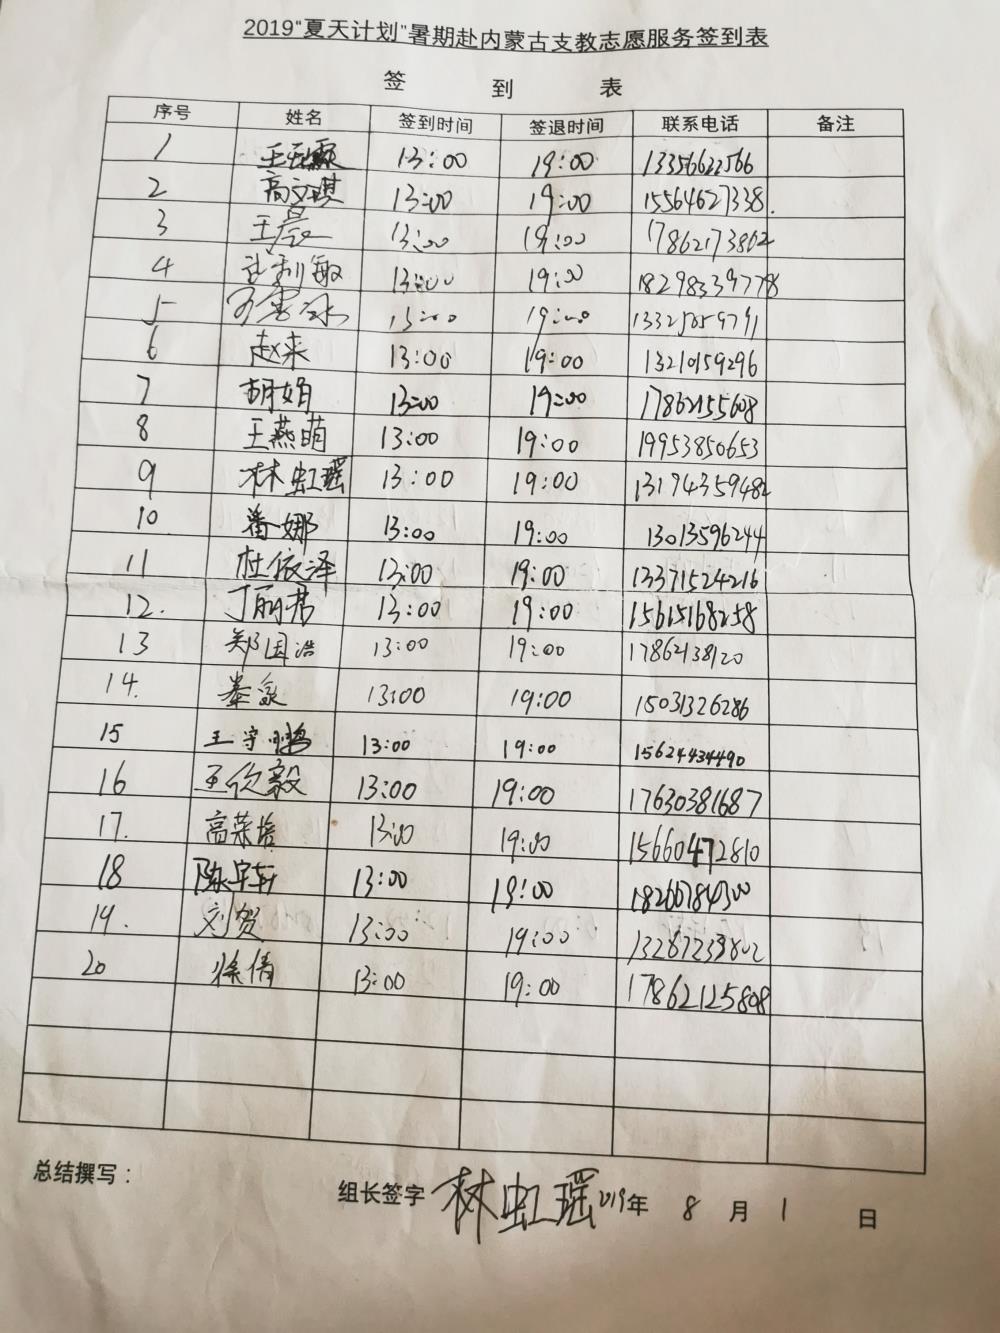 2019“夏天计划”暑期赴内蒙古支教志愿服务签到表
签 到 表
序号 姓名 签到时间 签退时间 联系电话 备注
1 13:00 19:00 13356622566
2 高文琪 13:00 19:00 15564627338.
3 王晨 13:00 19:00 17862173862
4 利敏 13:00 19:00 18298339778
5 13:00 19:00
6 赵来 13:00 19:00 13210159296
7 胡娟 13:00 19:00 17862155608
8 王燕萌 13:00 19:00 19953850653
9 林虹瑶 13:00 19:00 13194359482
10 娜 13:00 19:00 13013596244
11 杜依泽 13:00 19:00 13371524216
12. 丁丽君 13:00 19:00 15615168258
13 郑国浩 13:00 19:00 17862138120
14. 秦 13:00 19:00 15031326286
15 王宇鹏 13:00 19:00 15624434490
16 毅 13:00 19:00 17630381687
17. 高荣培 13:00 19:00 15660472810
18 陈宇轩 13:00 19:00 18266784300
19. 刘贺 13:00 19:00 13287239802
20 徐倩 13:00 19:00 17862125808
总结撰写：
组长签字 林虹瑶 2019年 8 月 1 日